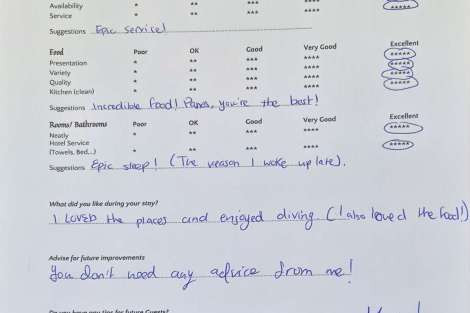 Availability * ** *** **** *****
Service * ** *** ****
Suggestions Epic service!
Food Poor OK Good Very Good Excellent
Presentation * ** *** **** *****
Variety * ** *** **** *****
Quality * ** *** **** *****
Kitchen (clean) * ** *** **** *****
Suggestions Incredible food! you're the best!
Rooms/ Bathrooms Poor OK Good Very Good Excellent
Neatly * ** *** **** *****
Hotel Service
(Towels, Bed,..) * ** *** **** *****
Suggestions Epic sleep! (The reason I woke up late).
What did you like during your stay?
I LOVED the places and enjoyed diving. (I also loved the food!)
Advise for future improvements
You don't need any advice from me!
Do you have any tips for future Guests?